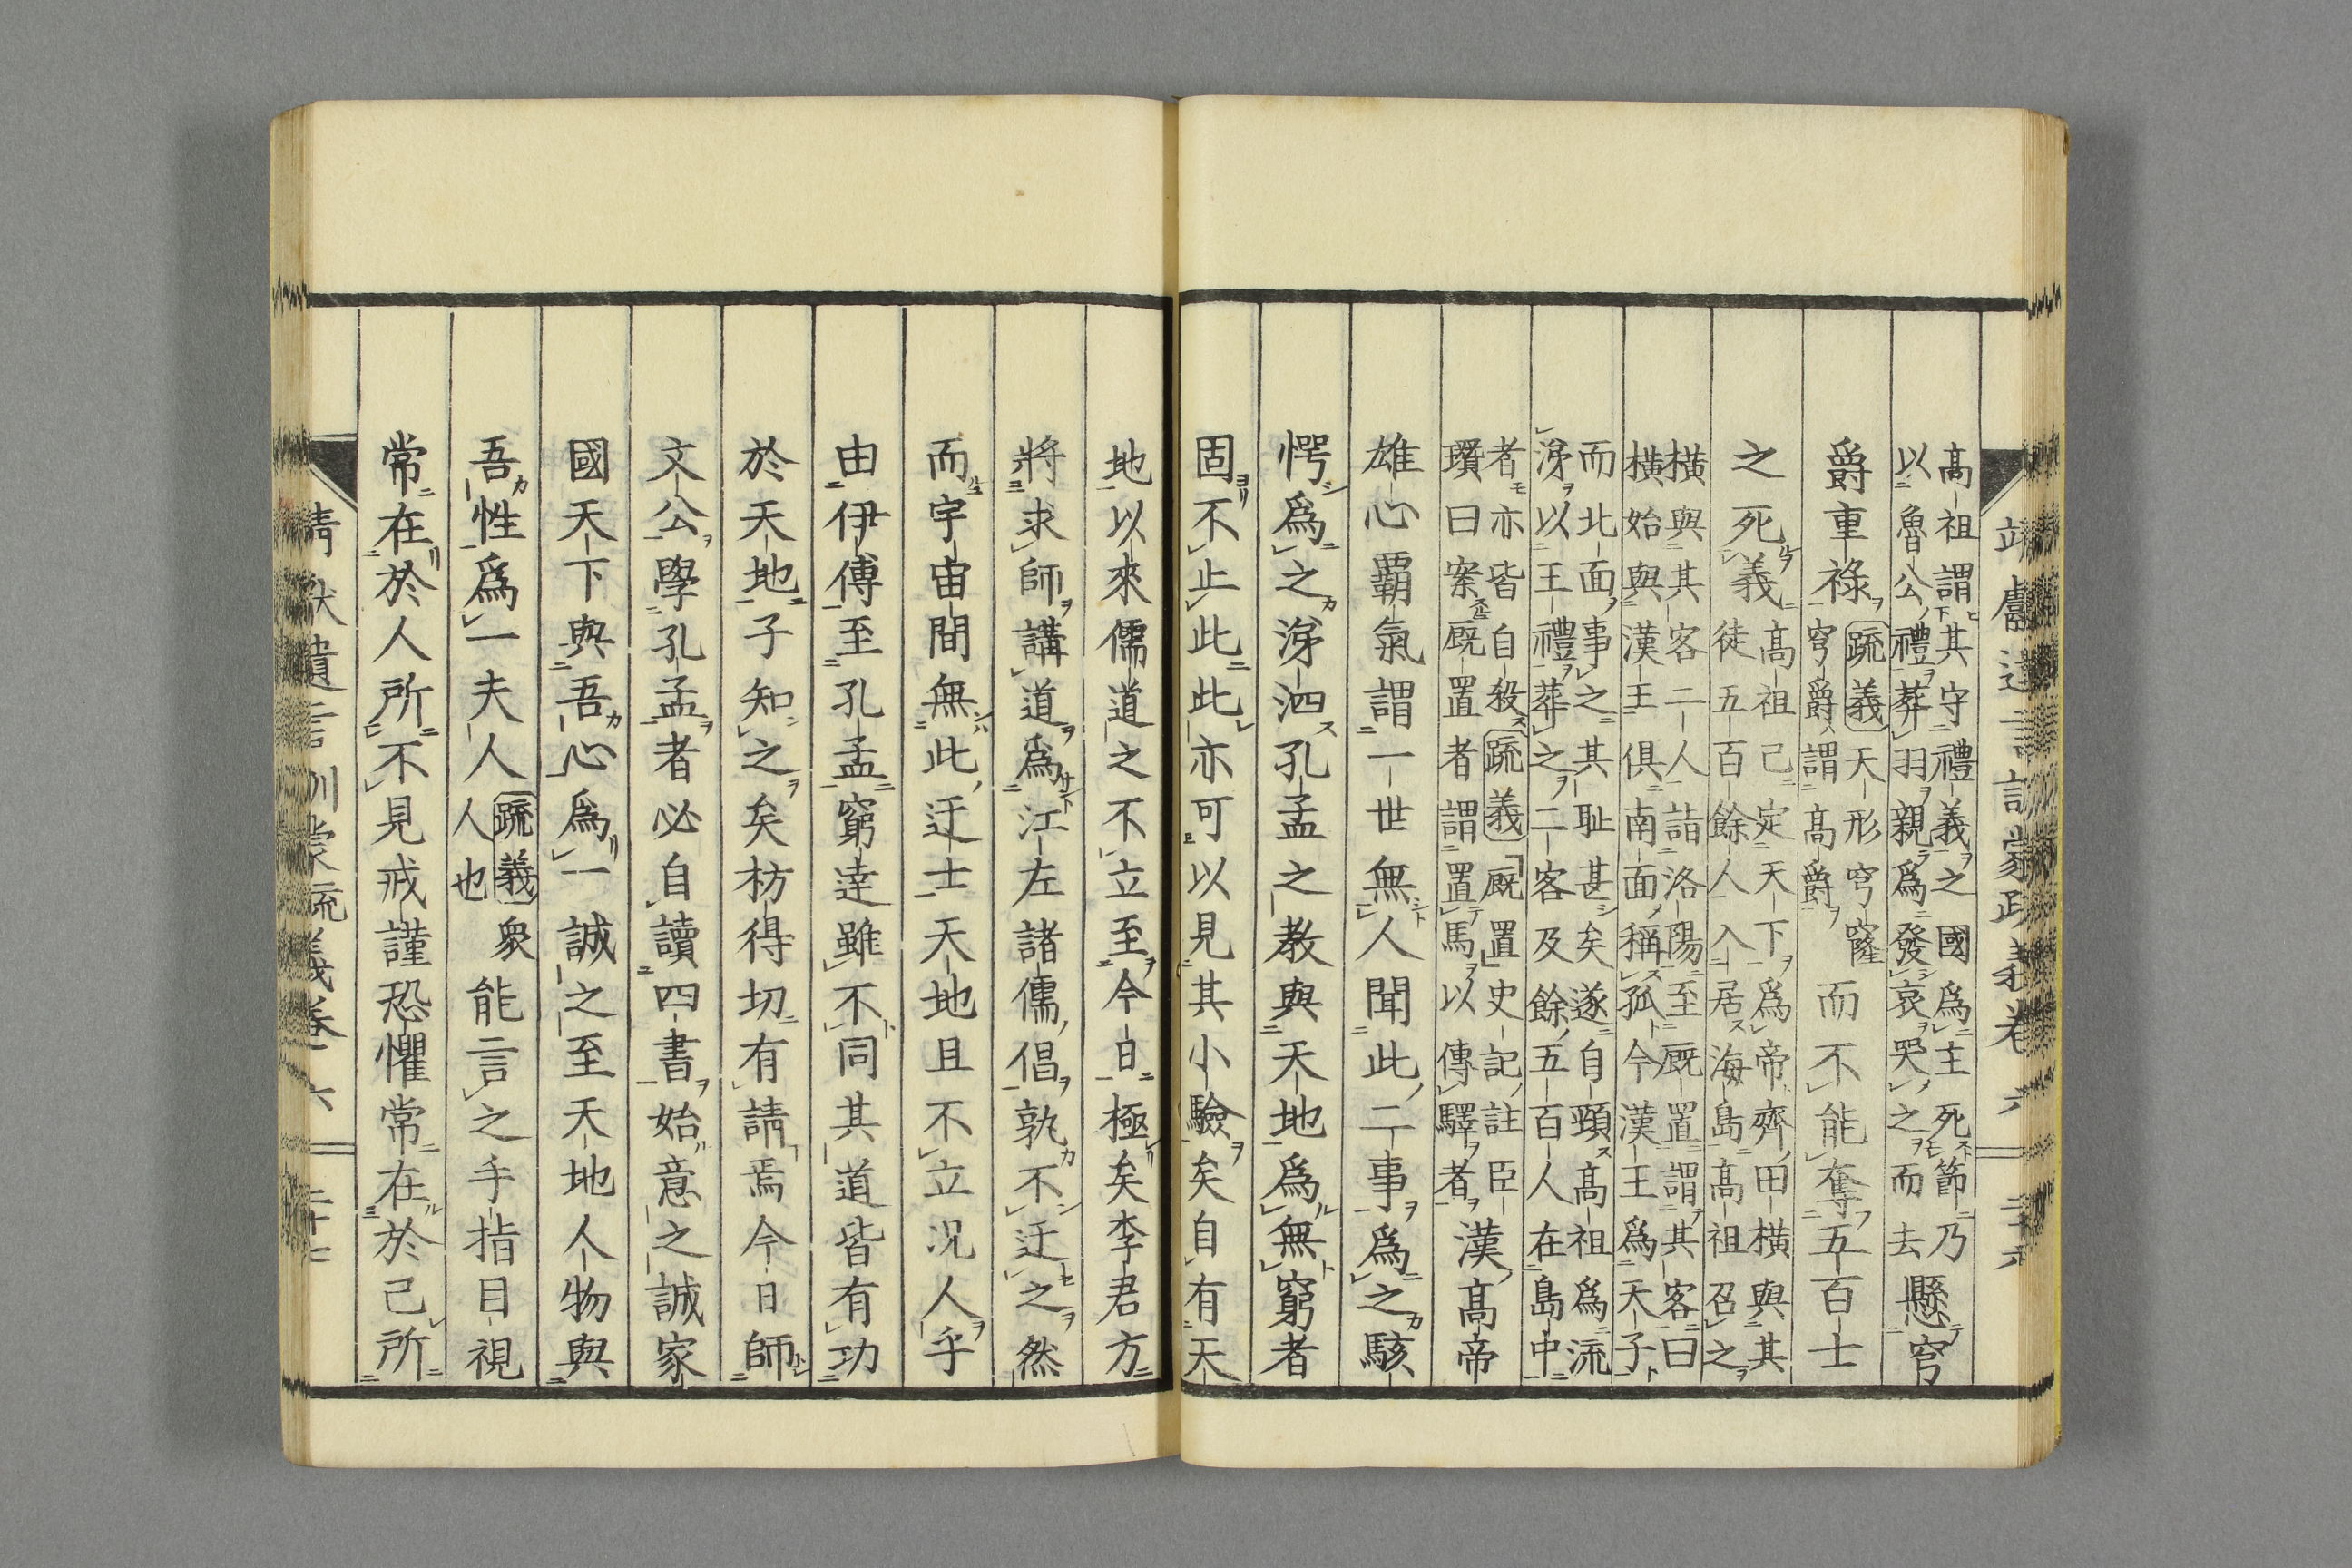 靖獻遺言訓蒙疏義卷六 二十六
高祖謂其守禮義之國爲主死節乃
以魯公禮葬羽親爲發哀哭之而去
懸穹
爵重祿
疏義天形穹窿
穹爵謂高爵
而不能奪五百士
之死義
高祖已定天下爲帝齊田橫與其
徒五百餘人入居海島高祖召之
橫與其客二人詣洛陽至厩置謂其客曰
橫始與漢王俱南面稱孤今漢王爲天子
而北面事之其耻甚矣遂自頸高祖爲流
涕以王禮葬之二客及餘五百人在島中
者亦皆自殺疏義厩置史記註臣
瓚曰案厩置者謂置馬以傳驛者
漢高帝
雄心覇氣謂一世無人聞此二事爲之駭
愕爲之涕泗孔孟之教與天地爲無窮者
固不止此此亦可以見其小驗矣自有天
地以來儒道之不立至今日極矣李君方
將求師講道爲江左諸儒倡孰不迂之然
而宇宙間無此迂士天地且不立況人乎
由伊傅至孔孟窮達雖不同其道皆有功
於天地子知之矣枋得切有請焉今日師
文公學孔孟者必自讀四書始意之誠家
國天下與吾心爲一誠之至天地人物與
吾性爲一夫人
疏義衆
人人也
能言之手指目視
常在於人所不見戒謹恐懼常在於己所
靖獻遺言訓蒙疏義卷六 二十七